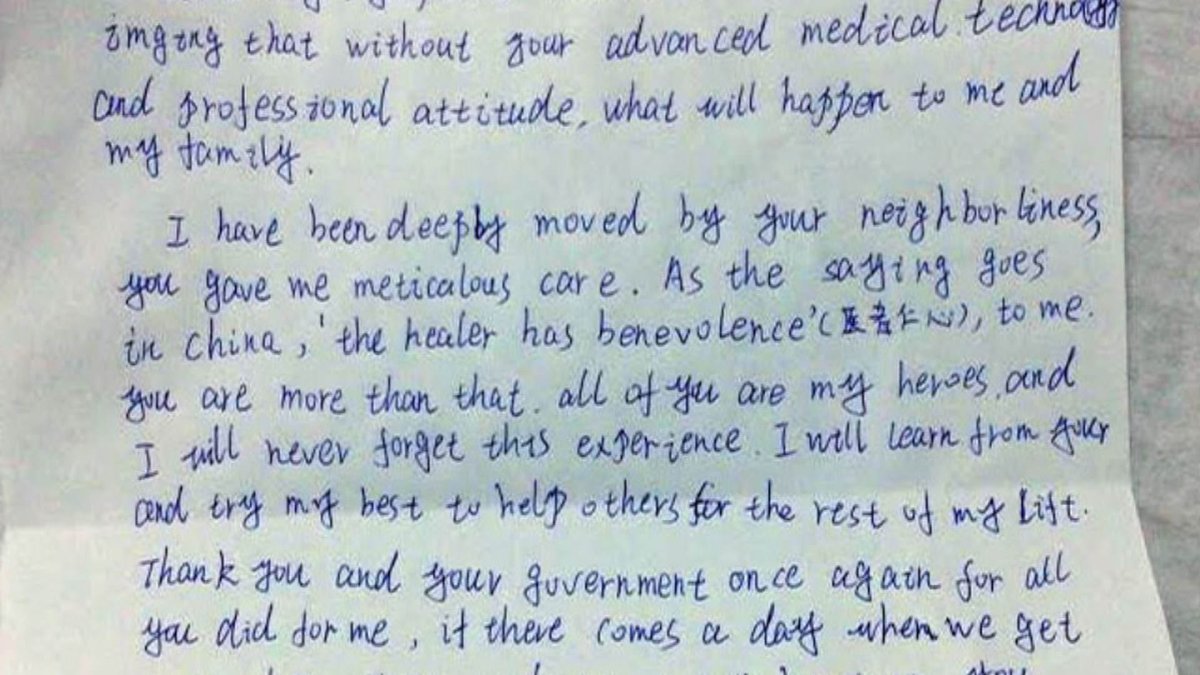 imging that without your advanced medical technology
and professional attitude, what will happen to me and
my family.
I have been deeply moved by your neighborliness,
you gave me meticalous care. As the saying goes
in china, 'the healer has benevolence'(医者仁心), to me.
you are more than that. all of you are my heroes, and
I will never forget this experience. I will learn from your
and try my best to help others for the rest of my lift.
Thank you and your government once again for all
you did for me, if there comes a day when we get